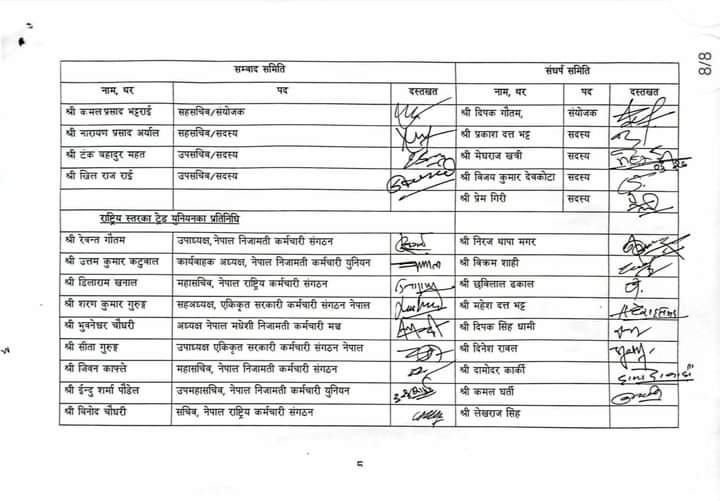 8/8
सम्बाद समिति संघर्ष समिति
नाम, थर पद दस्तखत नाम, थर पद दस्तखत
श्री कमल प्रसाद भट्टराई सहसचिव/संयोजक श्री दिपक गौतम, संयोजक
श्री नारायण प्रसाद अर्याल सहसचिव/सदस्य श्री प्रकाश दत्त भट्ट सदस्य
श्री टंक बहादुर महत उपसचिव/सदस्य श्री मेघराज खत्री सदस्य
श्री खिल राज राई उपसचिव/सदस्य श्री विजय कुमार देवकोटा सदस्य
श्री प्रेम गिरी सदस्य
राष्ट्रिय स्तरका ट्रेड युनियनका प्रतिनिधि
श्री रेवन्त गौतम उपाध्यक्ष, नेपाल निजामती कर्मचारी संगठन श्री निरज थापा मगर
श्री उत्तम कुमार कटुवाल कार्यवाहक अध्यक्ष, नेपाल निजामती कर्मचारी युनियन श्री विक्रम शाही
श्री डिलाराम खनाल महासचिव, नेपाल राष्ट्रिय कर्मचारी संगठन श्री छविलाल ढकाल
श्री शरण कुमार गुरुङ्ग सहअध्यक्ष, एकिकृत सरकारी कर्मचारी संगठन नेपाल श्री महेश दत्त भट्ट
श्री भुवनेश्वर चौधरी अध्यक्ष नेपाल मधेशी निजामती कर्मचारी मञ्च श्री दिपक सिंह धामी
श्री सीता गुरुङ्ग उपाध्यक्ष एकिकृत सरकारी कर्मचारी संगठन नेपाल श्री दिनेश रावल
श्री जिवन काफ्ले महासचिव, नेपाल निजामती कर्मचारी संगठन श्री दामोदर कार्की
श्री ईन्दु शर्मा पौडेल उपमहासचिव, नेपाल निजामती कर्मचारी युनियन श्री कमल घर्ती
श्री विनोद चौधरी सचिव, नेपाल राष्ट्रिय कर्मचारी संगठन श्री लेखराज सिंह
८